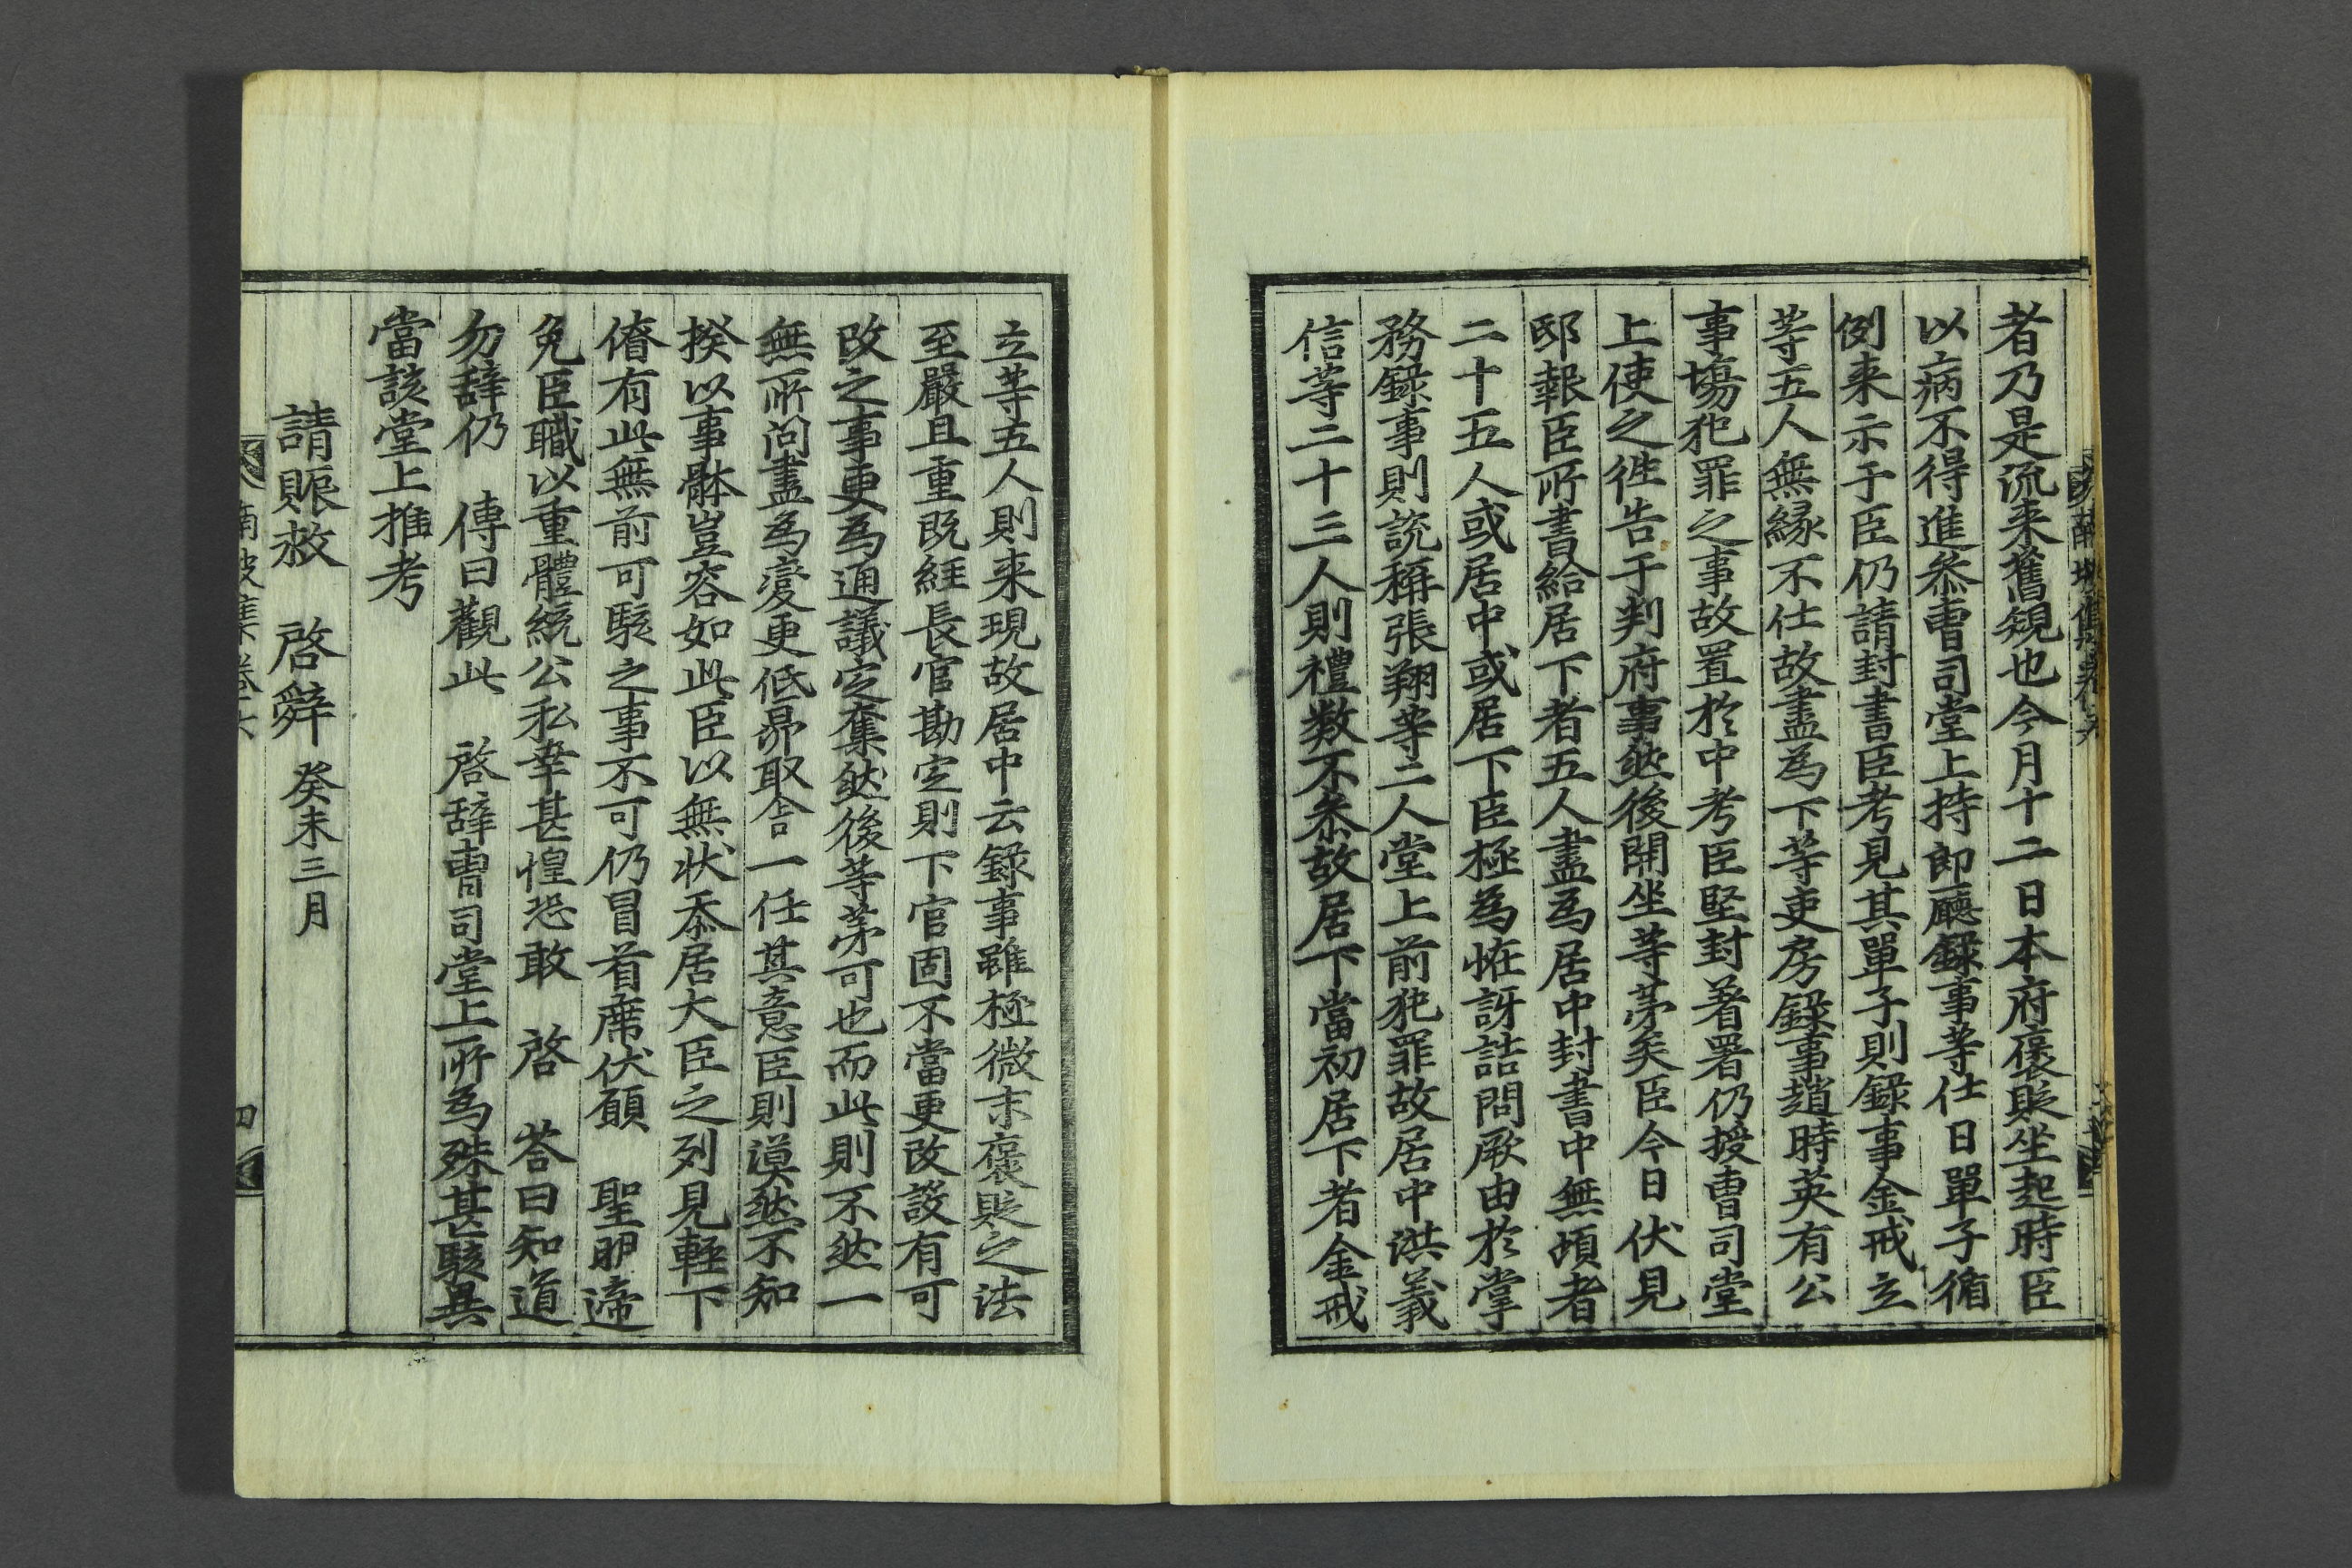 者乃是流来舊䂓也今月十二日本府褒貶坐起時臣
以病不得進叅曺司堂上持郎廳録事等仕日單子循
例来示于臣仍請封書臣考見其單子則録事金戒立
等五人無縁不仕故盡為下等吏房録事趙時英有公
事塲犯罪之事故置於中考臣堅封著署仍授曺司堂
上使之徃告于判府事然後開坐等苐矣臣今日伏見
邸報臣所書給居下者五人盡為居中封書中無頉者
二十五人或居中或居下臣極為恠訝詰問厥由於掌
務録事則説稱張翔等二人堂上前犯罪故居中洪義
信等二十三人則禮数不叅故居下當初居下者金戒
立等五人則来現故居中云録事雖極微末褒貶之法
至嚴且重既經長官勘定則下官固不當更改設有可
改之事更為通議定奪然後等苐可也而此則不然一
無所問盡為變更低昂取舍一任其意臣則漠然不知
揆以事軆豈容如此臣以無状忝居大臣之列見輕下
僚有此無前可駭之事不可仍冒首席伏願 聖明遆
免臣職以重體統公私幸甚惶恐敢 啓 荅曰知道
勿辞仍 傳曰觀此 啓辞曺司堂上所為殊甚駭異
當該堂上推考
請賑救 啓辤 癸未三月
南坡集卷六
四